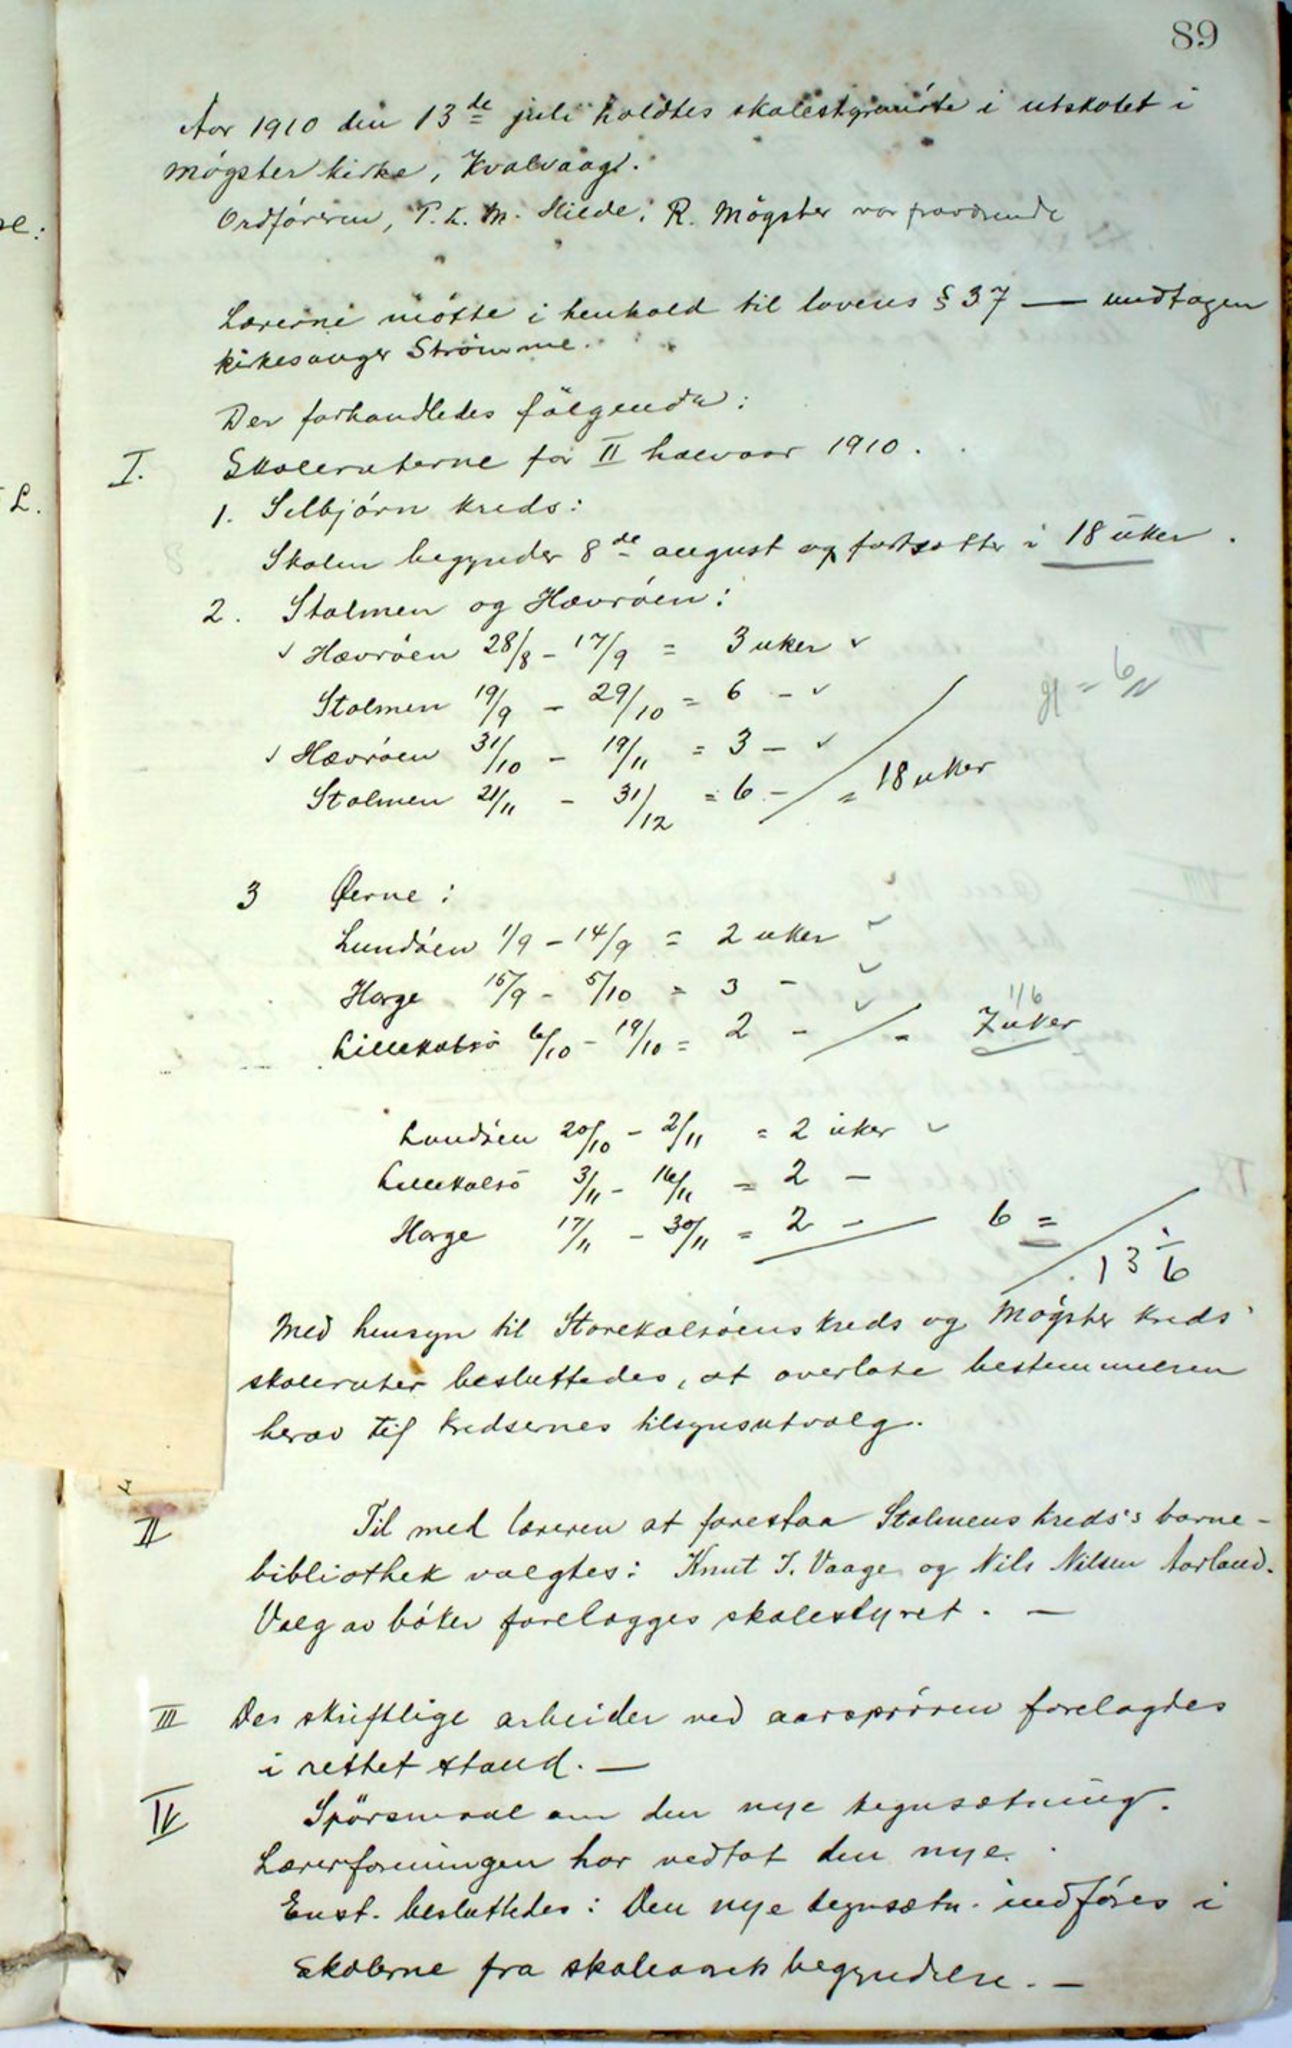 89
Aar 1910 den 13de juli holdtes skolestyremöte i utskotet i
Mögster kirke, Kvalvaag.
Ordföreren, P. L. M. Hilde, R. Mögster var fraværende
Lærerne mötte i henhold til lovens § 37 — undtagen
kirkesanger Strömme.
Der forhandledes fölgende:
I. Skoleruterne for II halvaar 1910.
1. Selbjörn kreds:
Skolen begynder 8de august og fortsætter i 18 uker.
2. Stolmen og Hævröen:
✓ Hævröen 28/8 – 17/9 = 3 uker ✓
Stolmen 19/9 – 29/10 = 6 – ✓
✓ Hævröen 31/10 – 19/11 = 3 – ✓
Stolmen 21/11 – 31/12 = 6 – / = 18 uker
3 Øerne:
Lundöen 1/9 – 14/9 = 2 uker ✓
Horge 15/9 – 5/10 = 3 – ✓
Lillekalsö 6/10 – 19/10 = 2 – ✓ / = 7 1/6 uker
Lundöen 20/10 – 2/11 = 2 uker ✓
Lillekalsö 3/11 – 16/11 = 2 –
Horge 17/11 – 30/11 = 2 – — 6 =
/ 13 1/6
Med hensyn til Storekalsöens kreds og Mögster kreds'
skoleruter besluttedes, at overlate bestemmelsen
herav til kredsernes tilsynsutvalg.
II Til med læreren at forestaa Stolmens kreds's barne-
bibliothek valgtes: Knut J. Vaage og Nils Nilsen Aarland.
Valg av böker forelægges skolestyret. —
III Des skriftlige arbeider ved aarspröven forelagdes
i rettet stand. —
IV Spörsmaal om den nye tegnsætning.
Lærerforeningen har vedtat den nye.
Enst. besluttedes: Den nye tegnsætn. indföres i
skolerne fra skoleaarets begyndelse. —